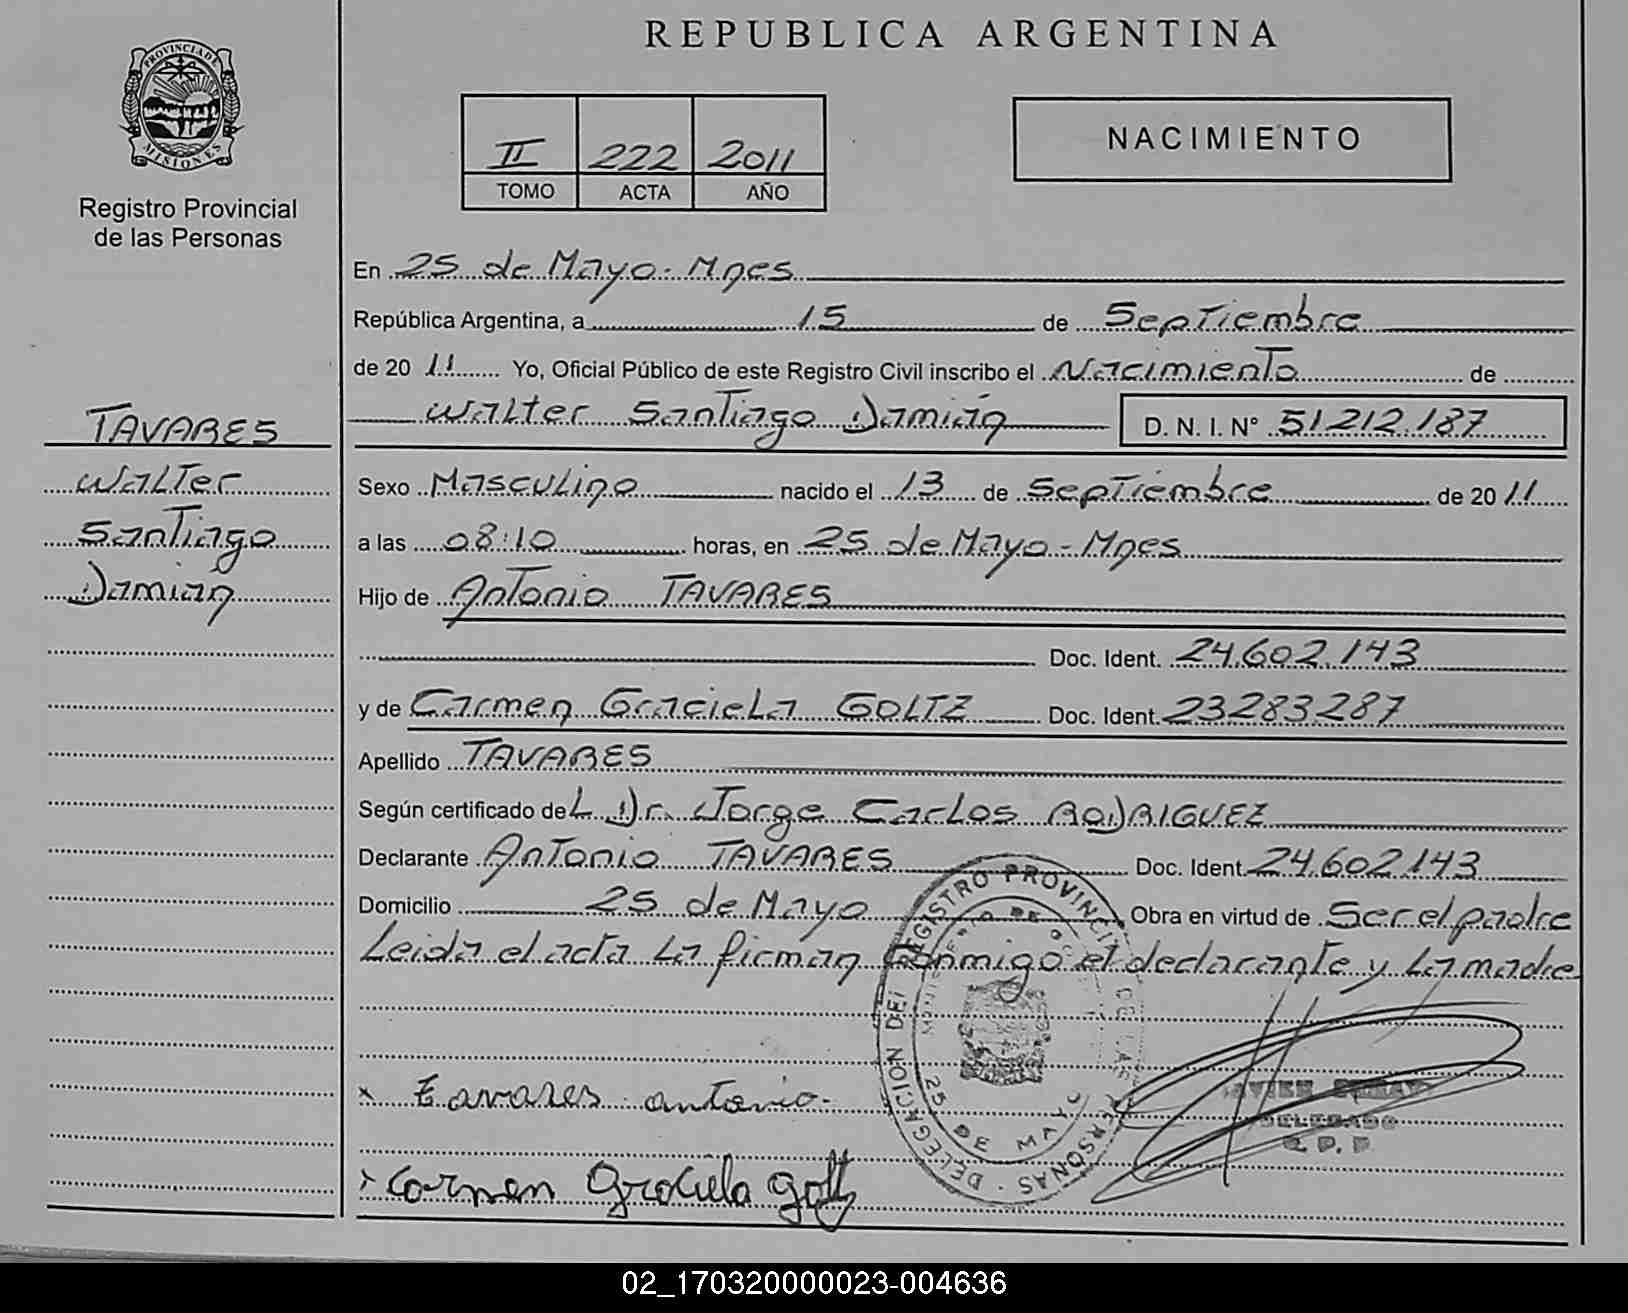 REPUBLICA ARGENTINA
PROVINCIA DE MISIONES
Registro Provincial
de las Personas
II 222 2011
TOMO ACTA AÑO
NACIMIENTO
TAVARES
Walter
Santiago
Damián
En 25 de Mayo - Mnes
República Argentina, a 15 de Septiembre
de 20 11 Yo, Oficial Público de este Registro Civil inscribo el Nacimiento de
Walter Santiago Damián D. N. I. N° 51.212.187
Sexo Masculino nacido el 13 de Septiembre de 20 11
a las 08:10 horas, en 25 de Mayo - Mnes
Hijo de Antonio TAVARES
Doc. Ident. 24.602.143
y de Carmen Graciela GOLTZ Doc. Ident. 23283287
Apellido TAVARES
Según certificado del Dr. Jorge Carlos RODRIGUEZ
Declarante Antonio TAVARES Doc. Ident. 24.602.143
Domicilio 25 de Mayo Obra en virtud de Ser el padre
Leida el acta la firman conmigo el declarante y la madre
x Tavares antonio.
x Carmen Graciela Goltz
DELEGACION DEL REGISTRO PROVINCIAL DE LAS PERSONAS
25 DE MAYO
DELEGADO
R. P. P.
02_170320000023-004636